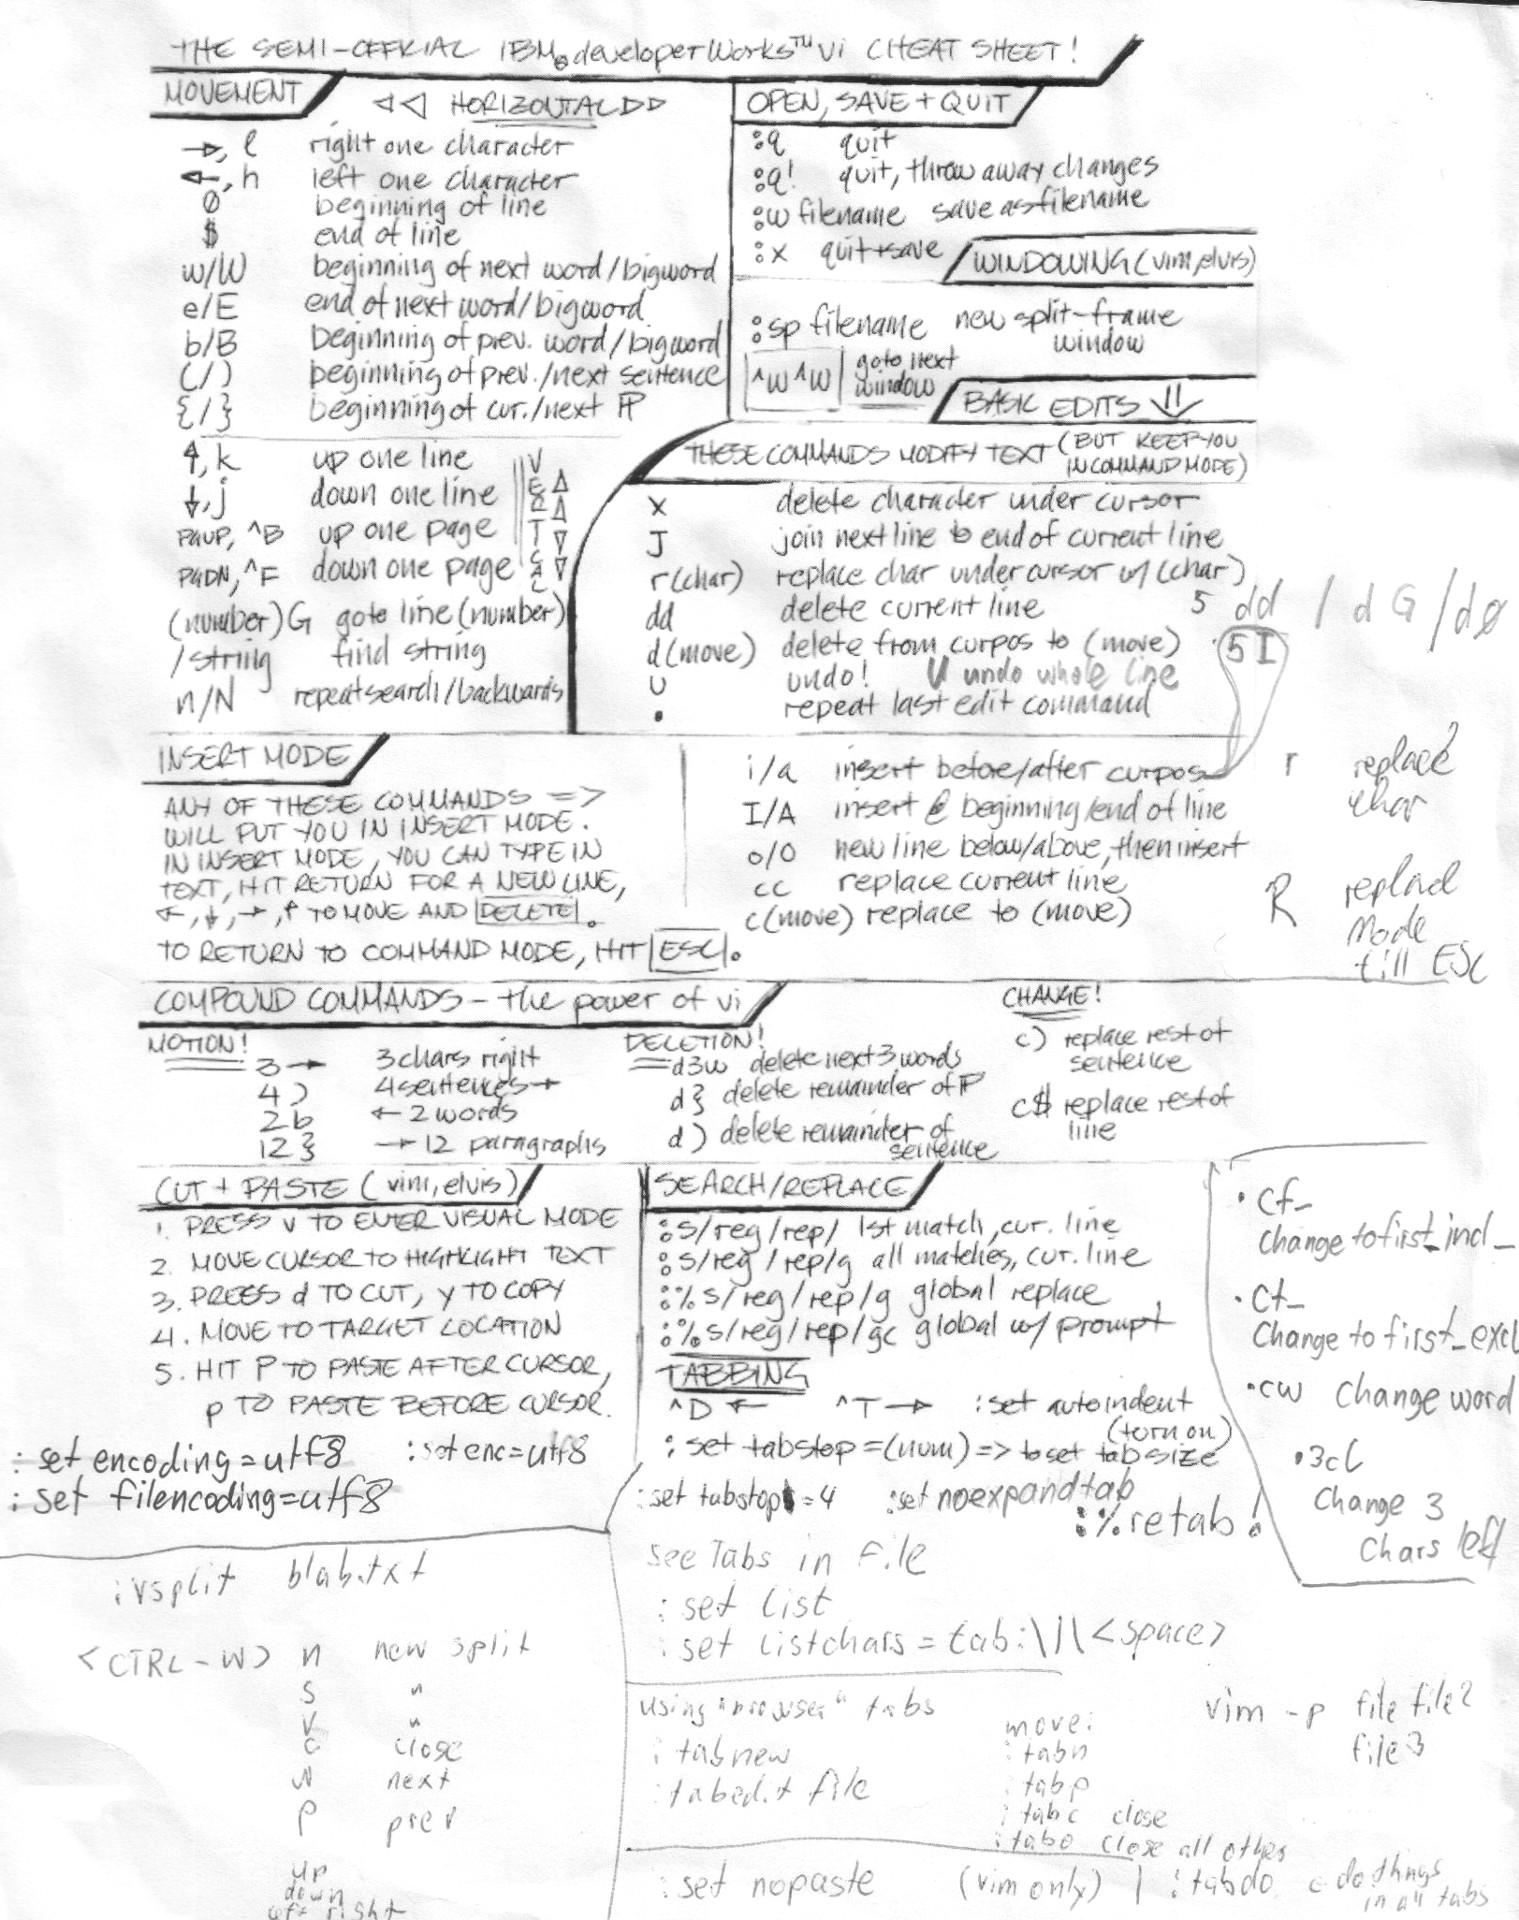 THE SEMI-OFFICIAL IBM® developerWorks™ vi CHEAT SHEET!
MOVEMENT
◁◁ HORIZONTAL ▷▷
→, l right one character
←, h left one character
0 beginning of line
$ end of line
w/W beginning of next word/bigword
e/E end of next word/bigword
b/B beginning of prev. word/bigword
(/) beginning of prev./next sentence
{/} beginning of cur./next ¶
↑, k up one line
↓, j down one line
PGUP, ^B up one page
PGDN, ^F down one page
VERTICAL
(number)G goto line (number)
/string find string
n/N repeat search/backwards
OPEN, SAVE + QUIT
:q quit
:q! quit, throw away changes
:w filename save as filename
:x quit+save
WINDOWING (vim, elvis)
:sp filename new split-frame window
^W^W goto next window
BASIC EDITS ⇓
THESE COMMANDS MODIFY TEXT (BUT KEEP YOU IN COMMAND MODE)
x delete character under cursor
J join next line to end of current line
r(char) replace char under cursor w/ (char)
dd delete current line 5 dd / d G / d0
d(move) delete from curpos to (move) 5 I
u undo! U undo whole line
. repeat last edit command
INSERT MODE
ANY OF THESE COMMANDS =>
WILL PUT YOU IN INSERT MODE.
IN INSERT MODE, YOU CAN TYPE IN
TEXT, HIT RETURN FOR A NEW LINE,
←, ↓, →, ↑ TO MOVE AND DELETE.
TO RETURN TO COMMAND MODE, HIT ESC.
i/a insert before/after curpos
I/A insert @ beginning/end of line
o/O new line below/above, then insert
cc replace current line
c(move) replace to (move)
r replace
char
R replace
Mode
till ESC
COMPOUND COMMANDS - the power of vi
MOTION!
3→ 3 chars right
4) 4 sentences →
2b ← 2 words
12} → 12 paragraphs
DELETION!
d3w delete next 3 words
d} delete remainder of ¶
d) delete remainder of
sentence
CHANGE!
c) replace rest of
sentence
c$ replace rest of
line
CUT + PASTE (vim, elvis)
1. PRESS v TO ENTER VISUAL MODE
2. MOVE CURSOR TO HIGHLIGHT TEXT
3. PRESS d TO CUT, y TO COPY
4. MOVE TO TARGET LOCATION
5. HIT P TO PASTE AFTER CURSOR,
p TO PASTE BEFORE CURSOR.
:set encoding=utf8 :set enc=utf8
:set filencoding=utf8
SEARCH/REPLACE
:s/reg/rep/ 1st match, cur. line
:s/reg/rep/g all matches, cur. line
:%s/reg/rep/g global replace
:%s/reg/rep/gc global w/ prompt
TABBING
^D ← ^T → :set autoindent
(turn on)
:set tabstop=(num) => to set tab size
:set tabstop=4 :set noexpandtab
:%retab!
• cf_
change to first_incl_
• ct_
Change to first_excl
• cw change word
• 3cl
Change 3
Chars left
:vsplit blab.txt
<CTRL-W> n new split
s "
v "
c close
w next
p prev
up
down
left right
see Tabs in File
:set list
:set listchars=tab:\|\<space>
using "browser" tabs
:tabnew
:tabedit file
move:
:tabn
:tabp
:tabc close
:tabo close all other
vim -p file file2
file3
:set nopaste (vim only) | :tabdo c do things
in all tabs